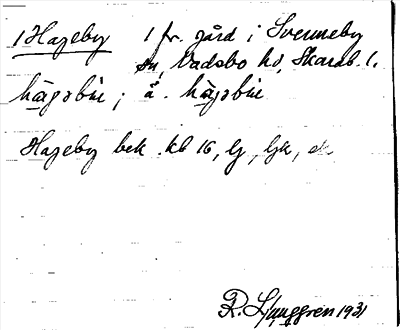 1 Hageby 1 fr. gård i Sveneby
sn, Vadsbo hd, Skarab. l.
hagabui; å. hagabui
Hageby bek. kb 16, lj, ljk, ek
R. Ljunggren 1931